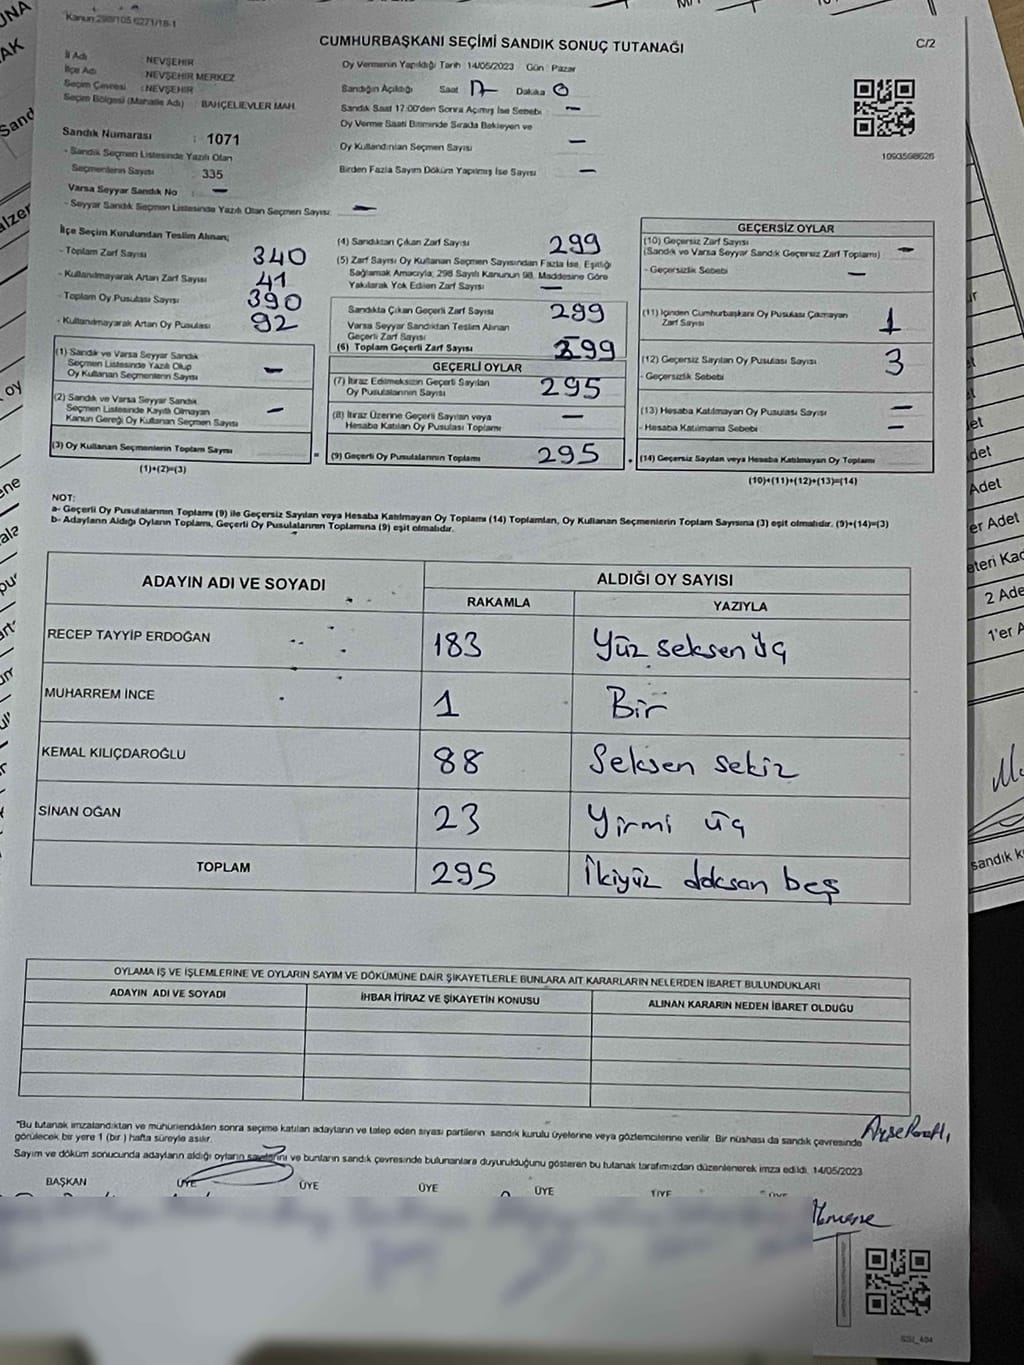 Kanun:298/105 6271/18-1
C/2
CUMHURBAŞKANI SEÇİMİ SANDIK SONUÇ TUTANAĞI
İl Adı : NEVŞEHİR
İlçe Adı : NEVŞEHİR MERKEZ
Seçim Çevresi : NEVŞEHİR
Seçim Bölgesi (Mahalle Adı) : BAHÇELİEVLER MAH.
Sandık Numarası : 1071
- Sandık Seçmen Listesinde Yazılı Olan
Seçmenlerin Sayısı : 335
Varsa Seyyar Sandık No : –
- Seyyar Sandık Seçmen Listesinde Yazılı Olan Seçmen Sayısı: –
Oy Vermenin Yapıldığı Tarih :14/05/2023 Gün : Pazar
Sandığın Açıldığı Saat 17 Dakika 0
Sandık Saat 17:00'den Sonra Açımış İse Sebebi : –
Oy Verme Saati Bitiminde Sırada Bekleyen ve
Oy Kullandırılan Seçmen Sayısı –
Birden Fazla Sayım Döküm Yapılmış İse Sayısı –
1093598626
İlçe Seçim Kurulundan Teslim Alınan;
- Toplam Zarf Sayısı 340
- Kullanılmayarak Artan Zarf Sayısı 41
- Toplam Oy Pusulası Sayısı 390
- Kullanılmayarak Artan Oy Pusulası 92
(1) Sandık ve Varsa Seyyar Sandık
Seçmen Listesinde Yazılı Olup
Oy Kullanan Seçmenlerin Sayısı –
(2) Sandık ve Varsa Seyyar Sandık
Seçmen Listesinde Kayıtlı Olmayan
Kanun Gereği Oy Kullanan Seçmen Sayısı –
(3) Oy Kullanan Seçmenlerin Toplam Sayısı
(1)+(2)=(3)
(4) Sandıktan Çıkan Zarf Sayısı 299
(5) Zarf Sayısı Oy Kullanan Seçmen Sayısından Fazla İse, Eşitliği
Sağlamak Amacıyla; 298 Sayılı Kanunun 98. Maddesine Göre
Yakılarak Yok Edilen Zarf Sayısı –
Sandıkta Çıkan Geçerli Zarf Sayısı 299
Varsa Seyyar Sandıktan Teslim Alınan
Geçerli Zarf Sayısı
(6) Toplam Geçerli Zarf Sayısı 299
GEÇERLİ OYLAR
(7) İtiraz Edilmeksizin Geçerli Sayılan
Oy Pusulalarının Sayısı 295
(8) İtiraz Üzerine Geçerli Sayılan veya
Hesaba Katılan Oy Pusulası Toplamı –
(9) Geçerli Oy Pusulalarının Toplamı 295
GEÇERSİZ OYLAR
(10) Geçersiz Zarf Sayısı –
(Sandık ve Varsa Seyyar Sandık Geçersiz Zarf Toplamı)
- Geçersizlik Sebebi –
(11) İçinden Cumhurbaşkanı Oy Pusulası Çıkmayan
Zarf Sayısı 1
(12) Geçersiz Sayılan Oy Pusulası Sayısı 3
- Geçersizlik Sebebi
(13) Hesaba Katılmayan Oy Pusulası Sayısı –
- Hesaba Katılmama Sebebi –
(14) Geçersiz Sayılan veya Hesaba Katılmayan Oy Toplamı
(10)+(11)+(12)+(13)=(14)
NOT:
a- Geçerli Oy Pusulalarının Toplamı (9) ile Geçersiz Sayılan veya Hesaba Katılmayan Oy Toplamı (14) Toplamları, Oy Kullanan Seçmenlerin Toplam Sayısına (3) eşit olmalıdır. (9)+(14)=(3)
b- Adayların Aldığı Oyların Toplamı, Geçerli Oy Pusulalarının Toplamına (9) eşit olmalıdır.
ADAYIN ADI VE SOYADI
ALDIĞI OY SAYISI
RAKAMLA YAZIYLA
RECEP TAYYİP ERDOĞAN 183 Yüz seksen üç
MUHARREM İNCE 1 Bir
KEMAL KILIÇDAROĞLU 88 Seksen sekiz
SİNAN OĞAN 23 Yirmi üç
TOPLAM 295 İkiyüz doksan beş
OYLAMA İŞ VE İŞLEMLERİNE VE OYLARIN SAYIM VE DÖKÜMÜNE DAİR ŞİKAYETLERLE BUNLARA AİT KARARLARIN NELERDEN İBARET BULUNDUKLARI
ADAYIN ADI VE SOYADI İHBAR İTİRAZ VE ŞİKAYETİN KONUSU ALINAN KARARIN NEDEN İBARET OLDUĞU
"Bu tutanak imzalandıktan ve mühürlendikten sonra seçime katılan adayların ve talep eden siyasi partilerin sandık kurulu üyelerine veya gözlemcilerine verilir. Bir nüshası da sandık çevresinde
görülecek bir yere 1 (bir) hafta süreyle asılır.
Sayım ve döküm sonucunda adayların aldığı oyların sayılarını ve bunların sandık çevresinde bulunanlara duyurulduğunu gösteren bu tutanak tarafımızdan düzenlenerek imza edildi. 14/05/2023
BAŞKAN ÜYE ÜYE ÜYE ÜYE ÜYE ÜYE